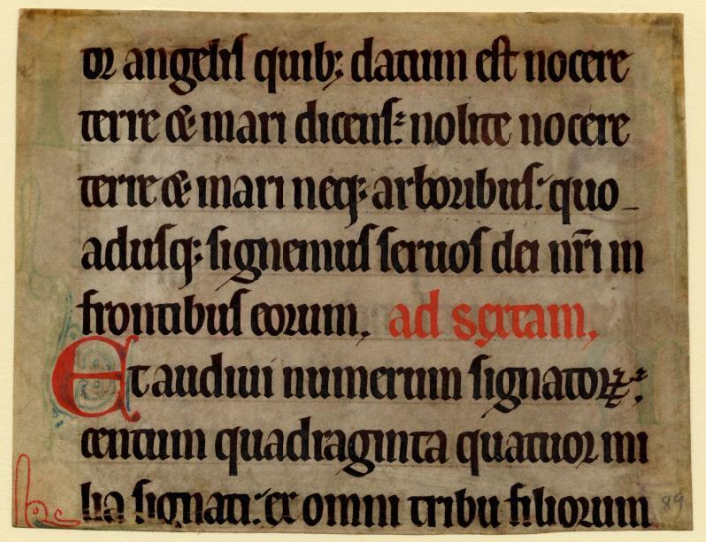 or angelis quib; datum est nocere
terre & mari dicens: nolite nocere
terre & mari neq; arboribus: quo
adusq; signemus seruos dei nr̄i in
frontibus eorum, ad sextam,
Et audiui numerum signatoꝝ:
centum quadraginta quatuor mi
lia signati: ex omni tribu filiorum
89